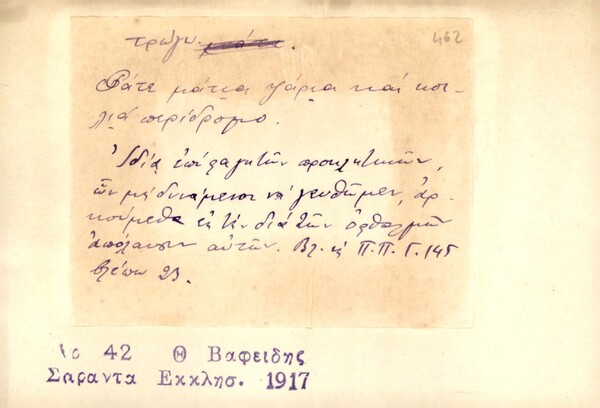 τρώγω.
462
Φάτε μάτια ψάρια και κοι-
λιά περίδρομο.
Ἰδίᾳ ἐπὶ φαγητῶν προκλητικῶν,
ὧν μὴ δυνάμενοι νὰ γευθῶμεν, ἀρ-
κούμεθα εἰς τὴν διὰ τῶν ὀφθαλμῶν
ἀπόλαυσιν αὐτῶν. Βλ. εἰς Π.Π.Γ. 145
βλέπω 23.
42 Θ Βαφειδης
Σαραντα Εκκλησ. 1917